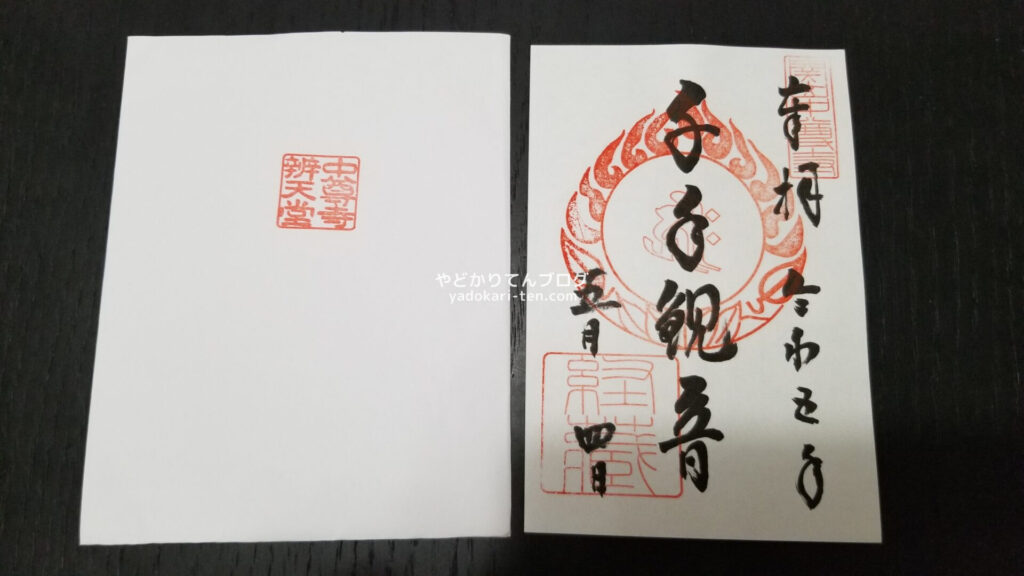 中尊寺
辨天堂
奉拝 令和五年
千手観音
五月四日
經藏
やどかりてんブログ
yadokari-ten.com